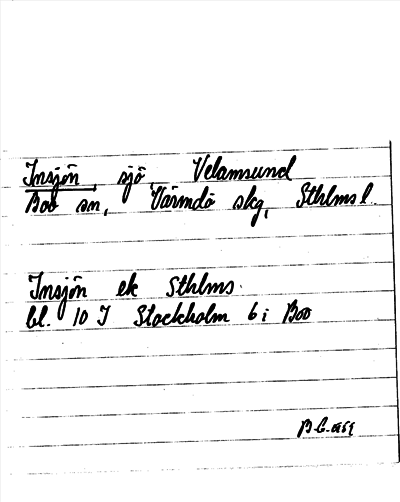 Insjön, sjö, Velamsund
Boo sn, Värmdö skg, Sthlms l.
Insjön ek Sthlms
bl. 10 I Stockholm 6 i Boo